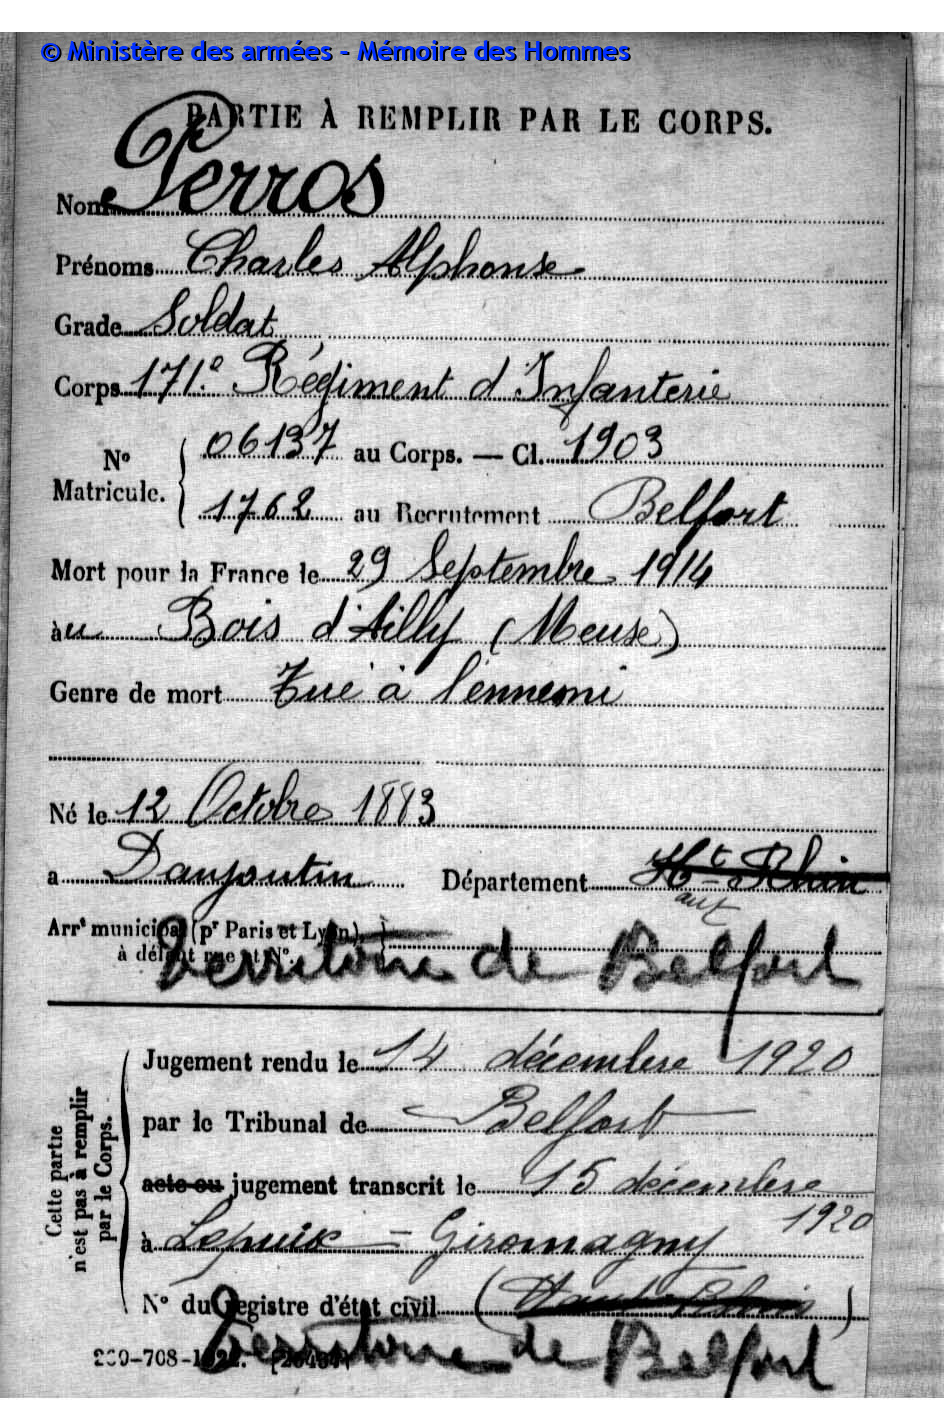 © Ministère des armées - Mémoire des Hommes
PARTIE À REMPLIR PAR LE CORPS.
Nom Perros
Prénoms Charles Alphonse
Grade Soldat
Corps 171.e Régiment d'Infanterie
No Matricule. 06137 au Corps. — Cl. 1903
1762 au Recrutement Belfort
Mort pour la France le 29 Septembre 1914
au Bois d'Ailly (Meuse)
Genre de mort Tué à l'ennemi
Né le 12 Octobre 1883
a Danjoutin Département Ht-Rhin
Arrt municipal (pr Paris et Lyon),
à défaut rue et No.
Territoire de Belfort
Cette partie n'est pas à remplir par le Corps.
Jugement rendu le 14 décembre 1920
par le Tribunal de Belfort
acte ou jugement transcrit le 15 décembre
1920
à Lepuix - Giromagny
No du registre d'état civil (Haut Rhin)
Territoire de Belfort